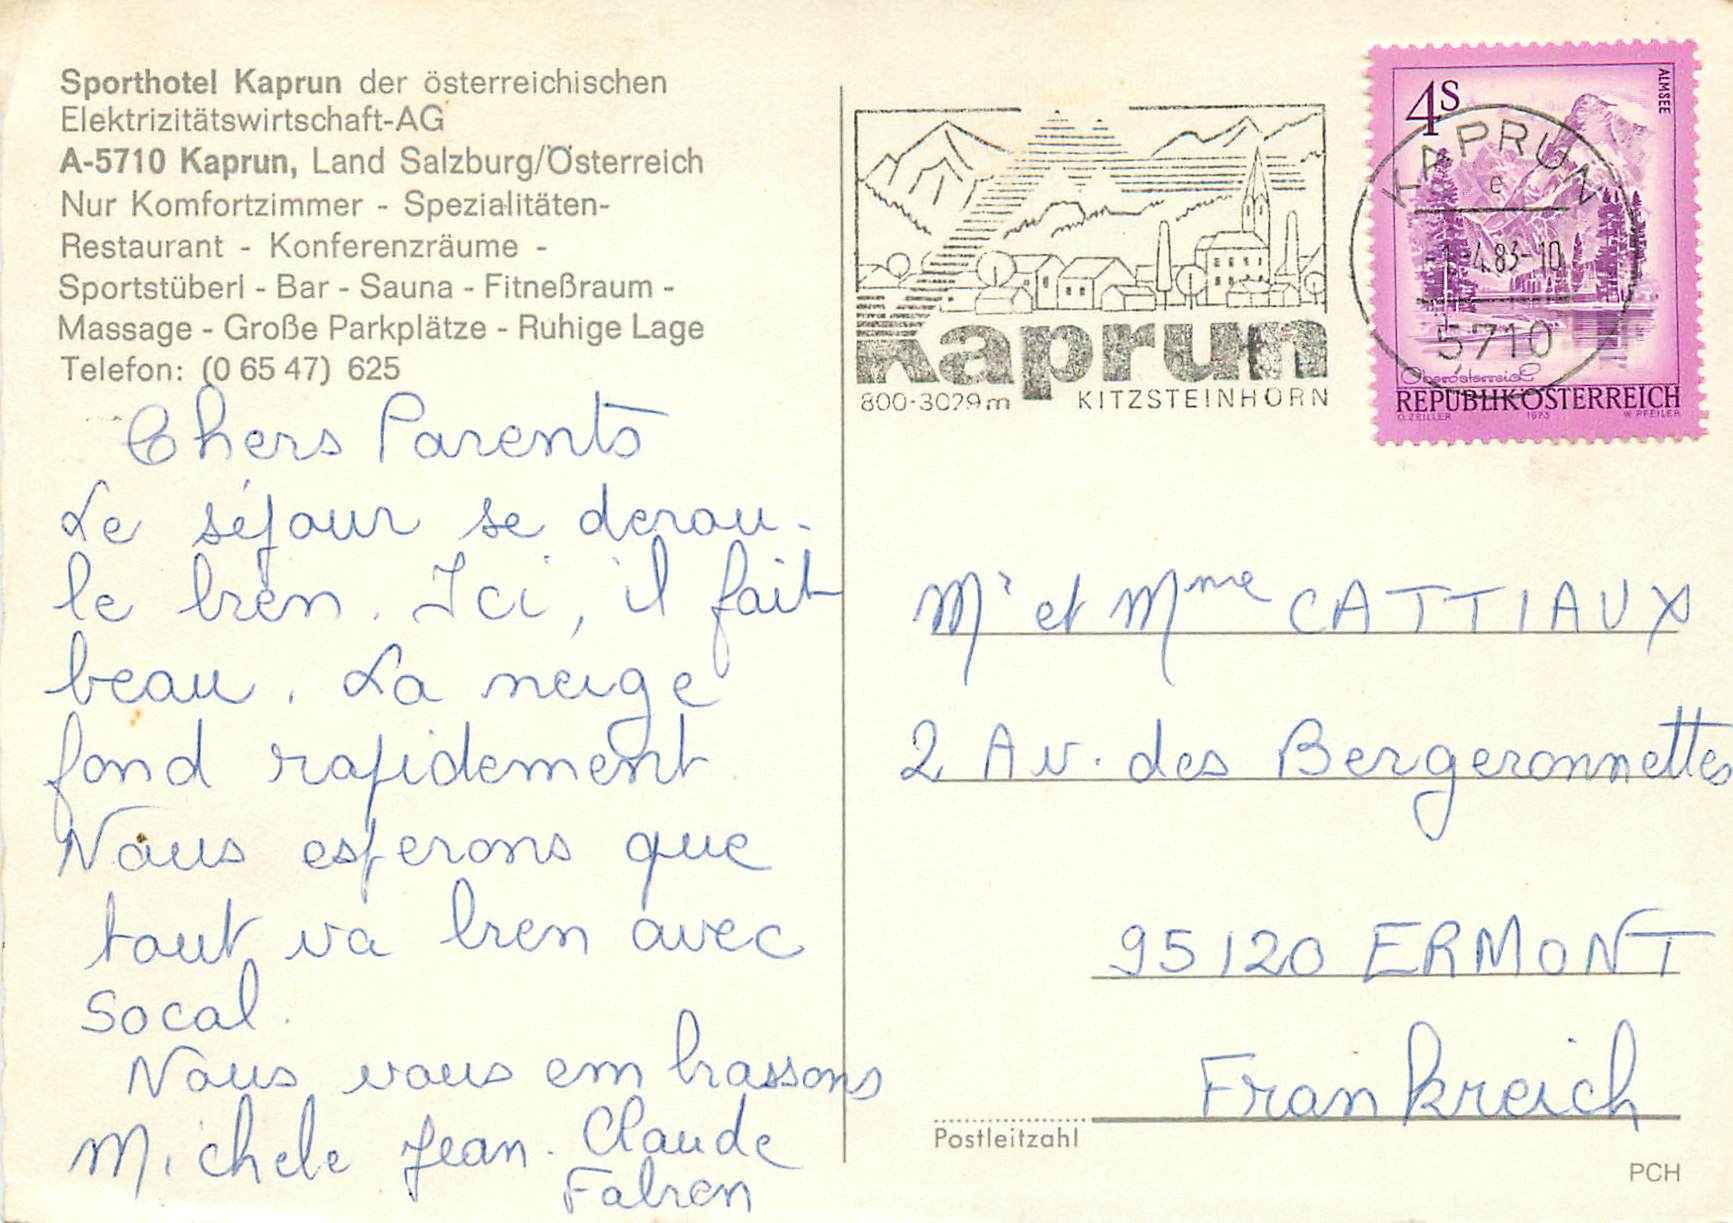 Sporthotel Kaprun der österreichischen
Elektrizitätswirtschaft-AG
A-5710 Kaprun, Land Salzburg/Österreich
Nur Komfortzimmer - Spezialitäten-
Restaurant - Konferenzräume -
Sportstüberl - Bar - Sauna - Fitneßraum -
Massage - Große Parkplätze - Ruhige Lage
Telefon: (0 65 47) 625
Chers Parents
Le séjour se derou-
le bien. Ici, il fait
beau. La neige
fond rapidement.
Nous esperons que
tout va bien avec
socal.
Nous vous embrassons
Michele Jean-Claude
Fabien
Kaprun
800-3029 m KITZSTEINHORN
4S
ALMSEE
KAPRUN
e
1.-4.83-10
5710
Oberösterreich
REPUBLIK ÖSTERREICH
O. ZEILLER 1973 W. PFEILER
Mr et Mme CATTIAUX
2 Av. des Bergeronnettes
95120 ERMONT
Frankreich
Postleitzahl
PCH